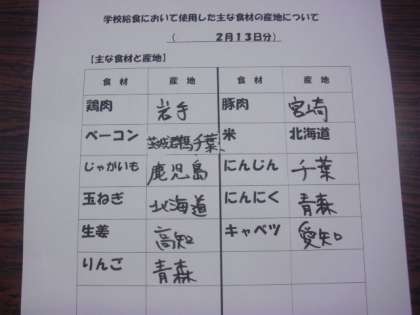 学校給食において使用した主な食材の産地について
( 2月13日分)
【主な食材と産地】
食 材 産 地 食 材 産 地
鶏肉 岩手 豚肉 宮崎
ベーコン 茨城 群馬 千葉 米 北海道
じゃがいも 鹿児島 にんじん 千葉
玉ねぎ 北海道 にんにく 青森
生姜 高知 キャベツ 愛知
りんご 青森